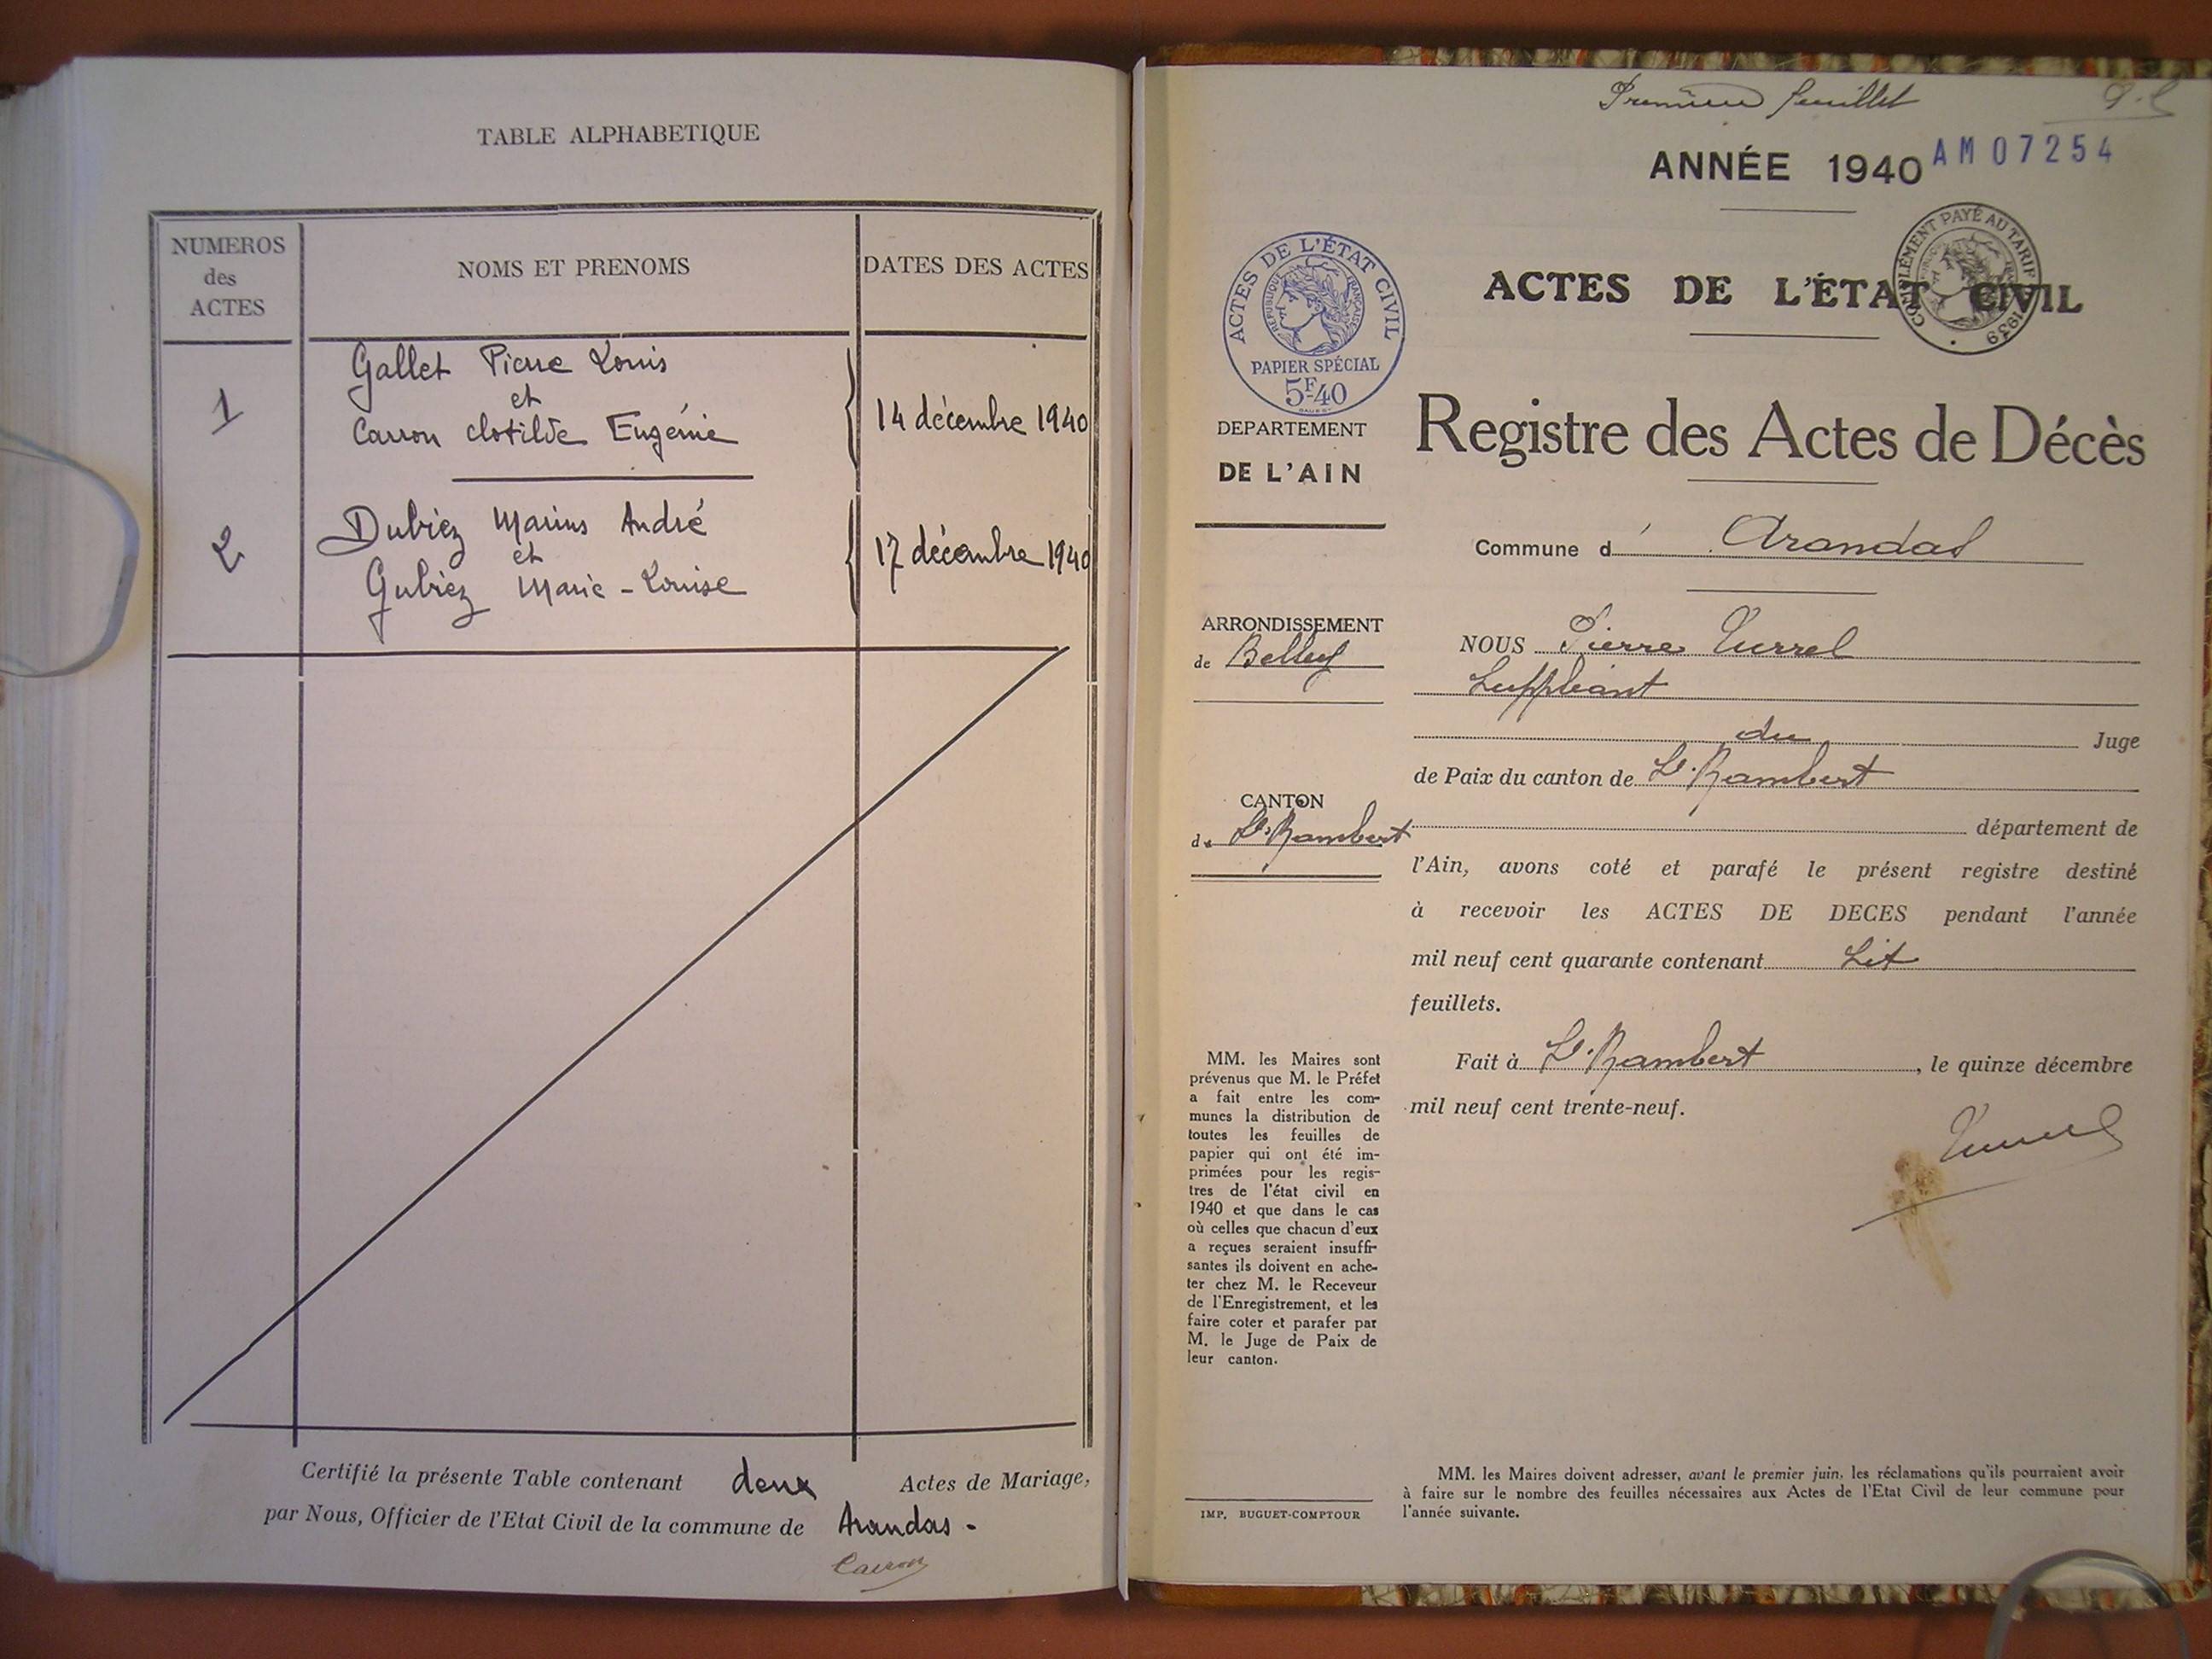 TABLE ALPHABETIQUE
NUMEROS
des
ACTES
NOMS ET PRENOMS
DATES DES ACTES
1
Gallet Pierre Louis
et
Carron Clotilde Eugénie
14 décembre 1940
2
Dubiez Marius André
et
Gubiez Marie-Louise
17 décembre 1940
Certifié la présente Table contenant deux Actes de Mariage,
par Nous, Officier de l'Etat Civil de la commune de Arandas.
Carron
Premier feuillet
ANNÉE 1940
AM07254
ACTES DE L'ÉTAT CIVIL
COMPLÉMENT PAYÉ AU TARIF 1939
ACTES DE L'ÉTAT CIVIL
RÉPUBLIQUE FRANÇAISE
PAPIER SPÉCIAL
5F40
DEPARTEMENT
DE L'AIN
Registre des Actes de Décès
Commune d' Arandas
ARRONDISSEMENT
de Belley
CANTON
de St Rambert
NOUS Pierre Turrel
Suppléant
du Juge
de Paix du canton de St Rambert
département de
l'Ain, avons coté et parafé le présent registre destiné
à recevoir les ACTES DE DECES pendant l'année
mil neuf cent quarante contenant Six
feuillets.
Fait à St Rambert, le quinze décembre
mil neuf cent trente-neuf.
Turrel
MM. les Maires sont
prévenus que M. le Préfet
a fait entre les com-
munes la distribution de
toutes les feuilles de
papier qui ont été im-
primées pour les regis-
tres de l'état civil en
1940 et que dans le cas
où celles que chacun d'eux
a reçues seraient insuffi-
santes ils doivent en ache-
ter chez M. le Receveur
de l'Enregistrement, et les
faire coter et parafer par
M. le Juge de Paix de
leur canton.
IMP. BUGUET-COMPTOUR
MM. les Maires doivent adresser, avant le premier juin, les réclamations qu'ils pourraient avoir
à faire sur le nombre des feuilles nécessaires aux Actes de l'Etat Civil de leur commune pour
l'année suivante.